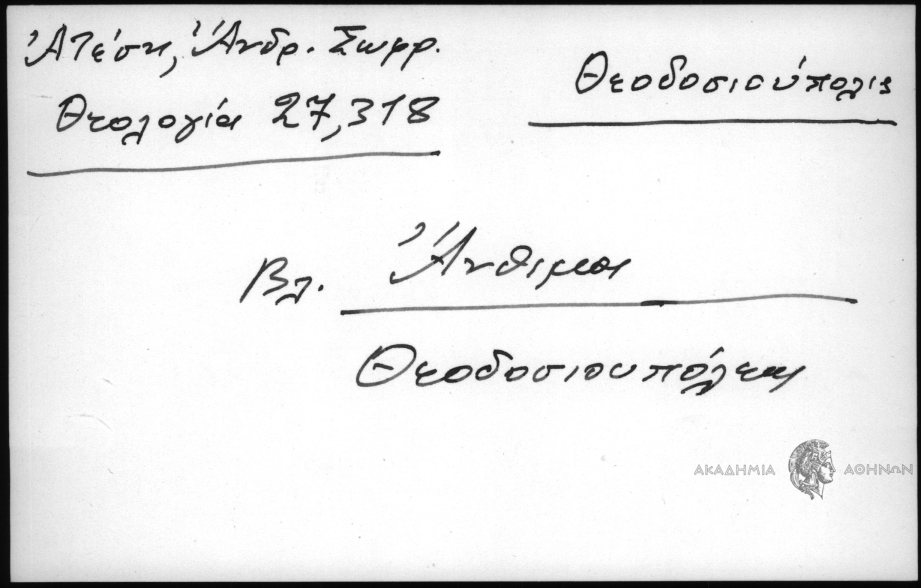 Ἀτέση, Ἀνδρ. Σωφρ.
Θεολογία 27,318
Θεοδοσιούπολις
Βλ. Ἄνθιμος
Θεοδοσιουπόλεως
ΑΚΑΔΗΜΙΑ ΑΘΗΝΩΝ